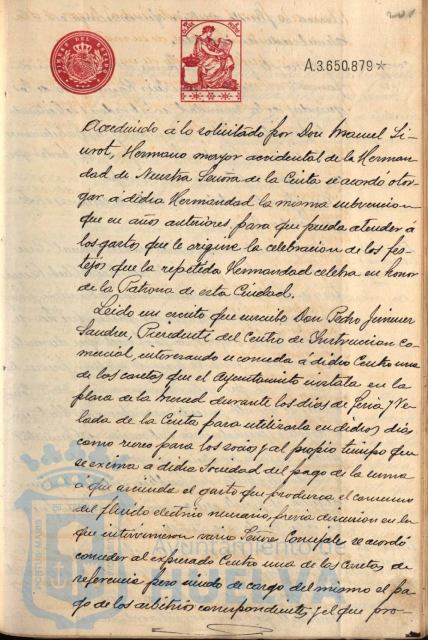 201
TIMBRE DEL ESTADO
A.3.650,879*
Accediendo á lo solicitado por Don Manuel Si-
urot, Hermano mayor accidental de la Herman-
dad de Nuestra Señora de la Cinta se acordó otor-
gar á dicha Hermandad la misma subvencion
que en años anteriores para que pueda atender á
los gastos que le origine la celebracion de los fes-
tejos que la repetida Hermandad celebra en honor
de la Patrona de esta Ciudad.
Leido un escrito que suscribe Don Pedro Jimenez
Sander, Presidente del Centro de Instruccion Co-
mercial, interesando se conceda á dicho Centro una
de las casetas que el Ayuntamiento instala en la
plaza de la Merced durante los dias de Feria y Ve-
lada de la Cinta para utilizarla en dichos dias
como recreo para los socios y al propio tiempo que
se exima á dicha Sociedad del pago de la suma
á que ascienda el gasto que produzca el consumo
del fluido electrico necesario, previa discusion en la
que intervinieron varios Señores Concejales se acordó
conceder al expresado Centro una de las casetas de
referencia pero siendo de cargo del mismo el pa-
go de los arbitrios correspondientes y el que pro-
PORTUS MARIS
Ayuntamiento de
HUELVA